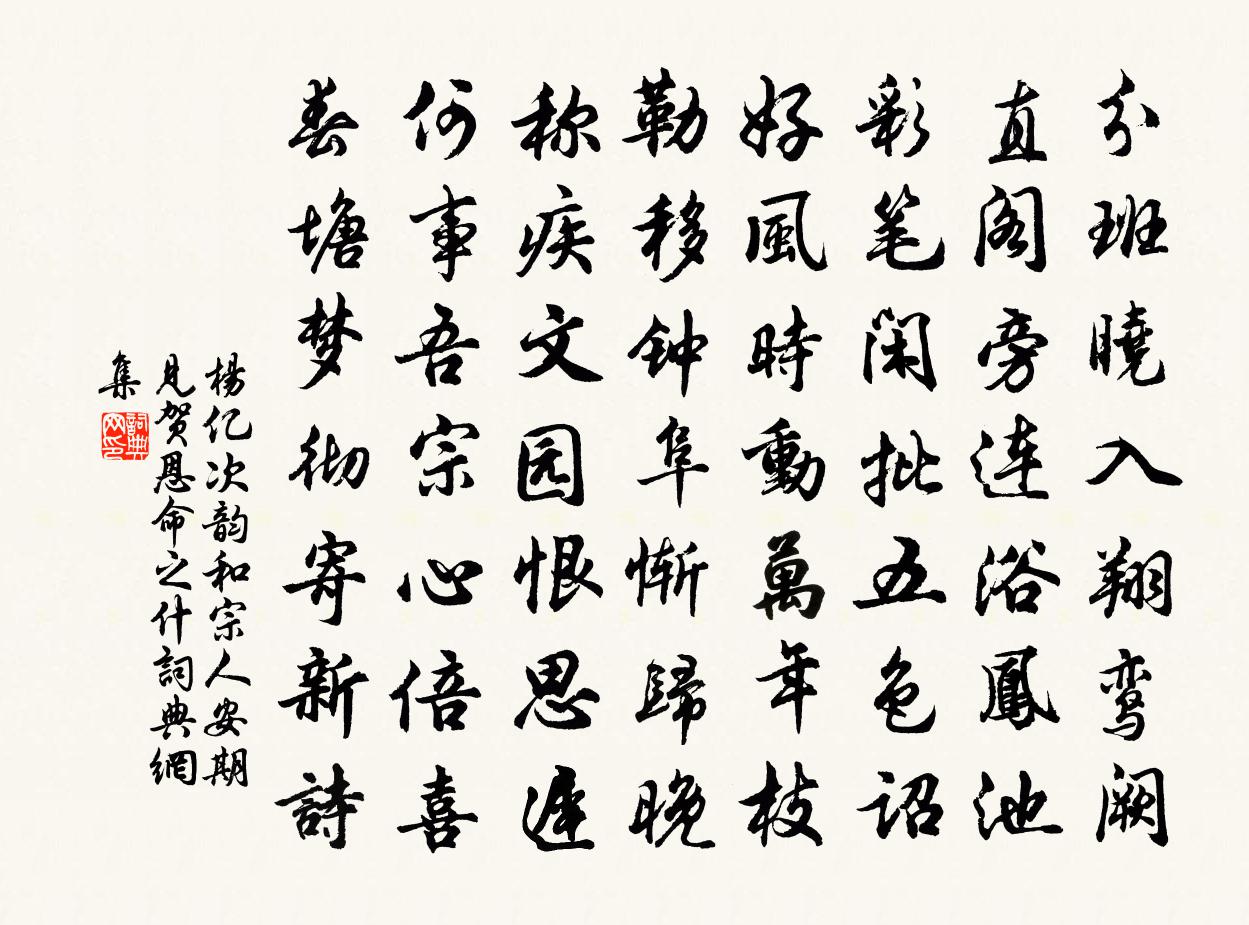 分班曉入翔鸾阙
直阁旁连浴鳳池
彩笔闲批五色诏
好風時動萬年枝
勒移钟阜惭歸晚
称疾文园恨思遲
何事吾宗心倍喜
春塘梦彻寄新詩
楊亿次韵和宗人安期
見贺恩命之什詞典網
集
詞典网印